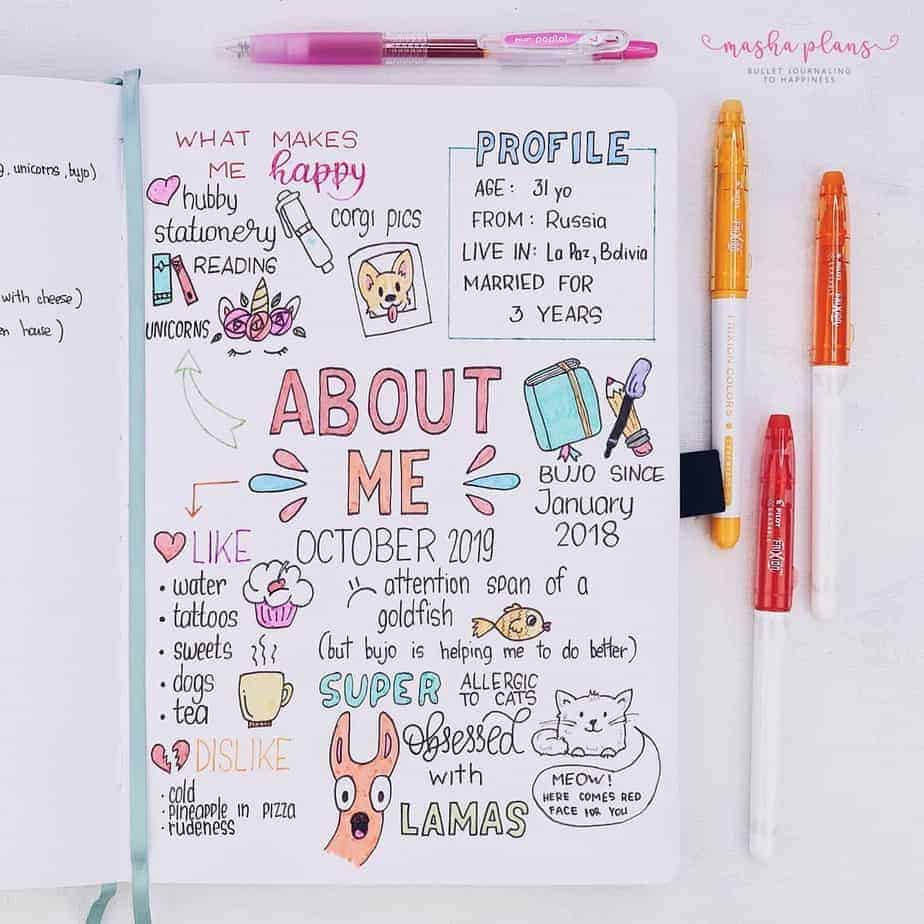 mashaplans
BULLET JOURNALING
TO HAPPINESS
, unicorns, bujo)
with cheese)
house)
WHAT MAKES
ME happy
hubby
stationery
corgi pics
READING
UNICORNS
PROFILE
AGE: 31 yo
FROM: Russia
LIVE IN: La Paz, Bolivia
MARRIED FOR
3 YEARS
ABOUT
ME
BUJO SINCE
January
2018
OCTOBER 2019
LIKE
• water
• tattoos
• sweets
• dogs
• tea
attention span of a
goldfish
(but bujo is helping me to do better)
SUPER
ALLERGIC
TO CATS
MEOW!
HERE COMES RED
FACE FOR YOU
obsessed
with
LAMAS
DISLIKE
• cold
• pineapple in pizza
• rudeness
FRIXION COLORS
PILOT
FRIXION